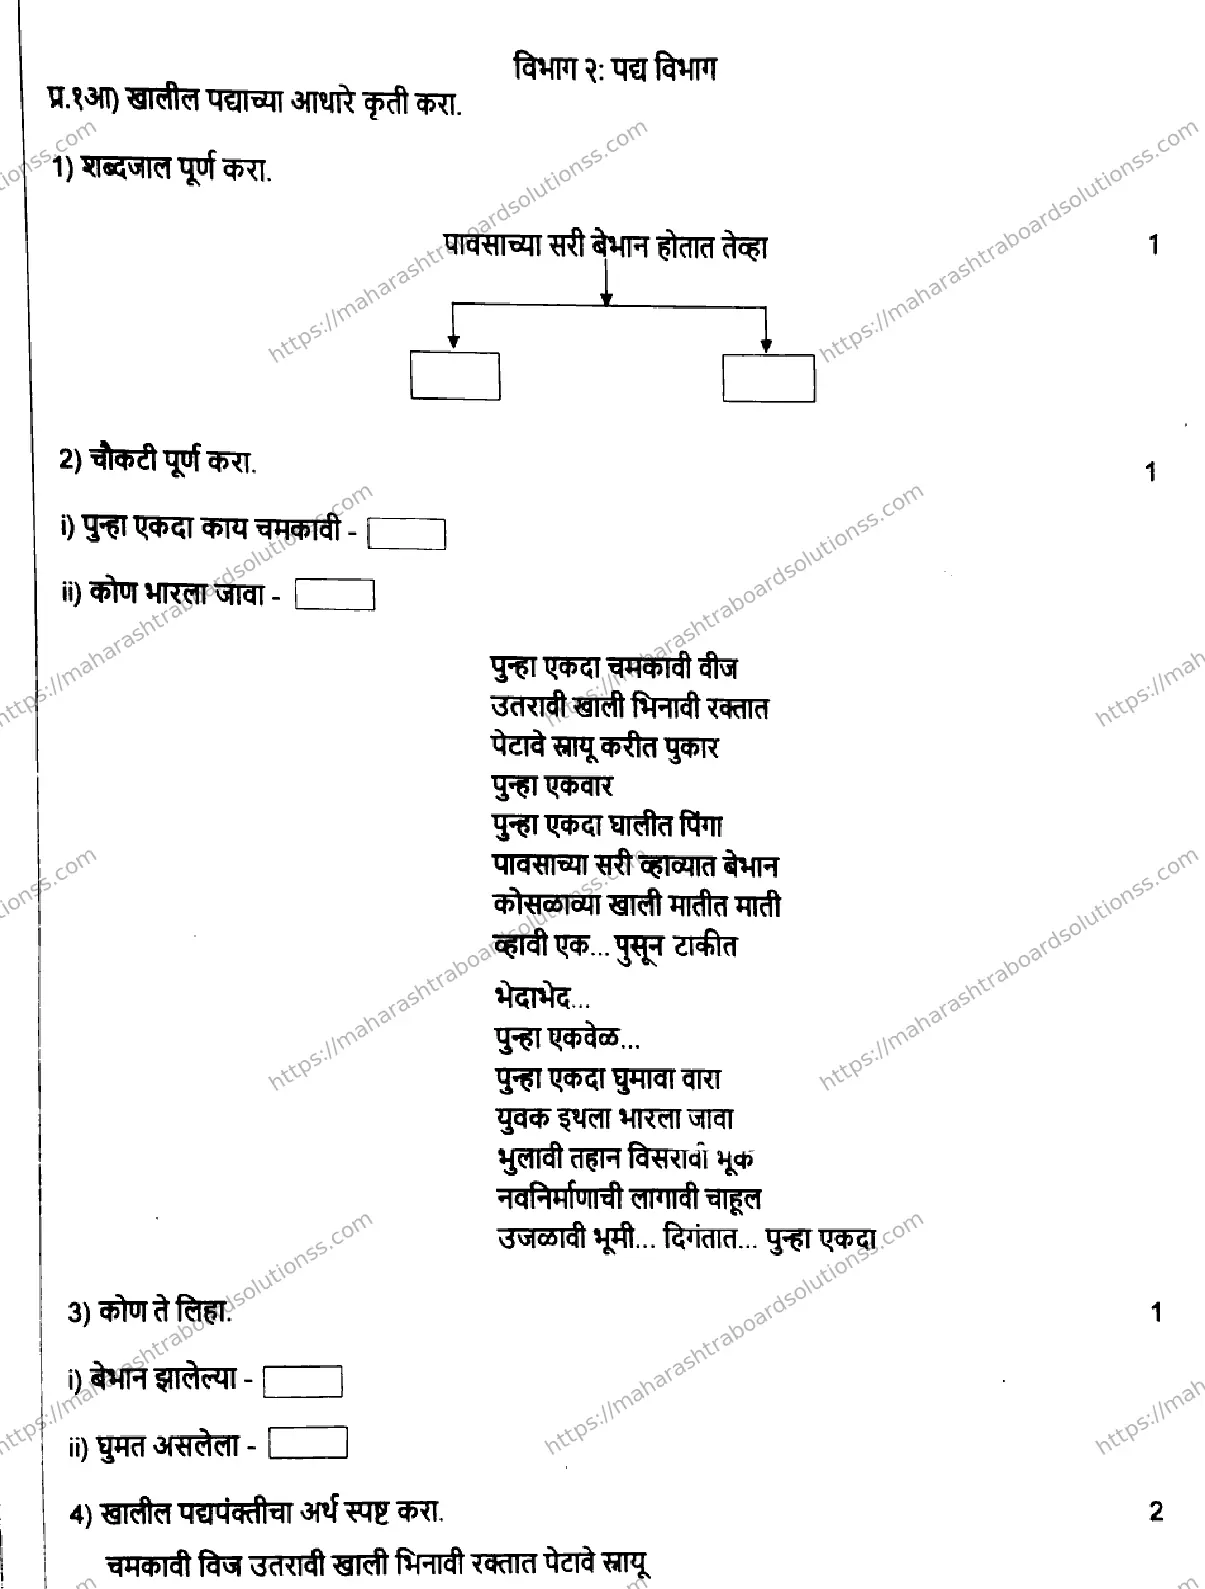 विभाग २: पद्य विभाग
प्र.१आ) खालील पद्याच्या आधारे कृती करा.
1) शब्दजाल पूर्ण करा.
पावसाच्या सरी बेभान होतात तेव्हा 1
2) चौकटी पूर्ण करा. 1
i) पुन्हा एकदा काय चमकावी -
ii) कोण भारला जावा -
पुन्हा एकदा चमकावी वीज
उतरावी खाली भिनावी रक्तात
पेटावे स्नायू करीत पुकार
पुन्हा एकवार
पुन्हा एकदा घालीत पिंगा
पावसाच्या सरी व्हाव्यात बेभान
कोसळाव्या खाली मातीत माती
व्हावी एक... पुसून टाकीत
भेदाभेद...
पुन्हा एकवेळ...
पुन्हा एकदा घुमावा वारा
युवक इथला भारला जावा
भुलावी तहान विसरावी भूक
नवनिर्माणाची लागावी चाहूल
उजळावी भूमी... दिगंतात... पुन्हा एकदा
3) कोण ते लिहा. 1
i) बेभान झालेल्या -
ii) घुमत असलेला -
4) खालील पद्यपंक्तीचा अर्थ स्पष्ट करा. 2
चमकावी विज उतरावी खाली भिनावी रक्तात पेटावे स्नायू
https://maharashtraboardsolutionss.com